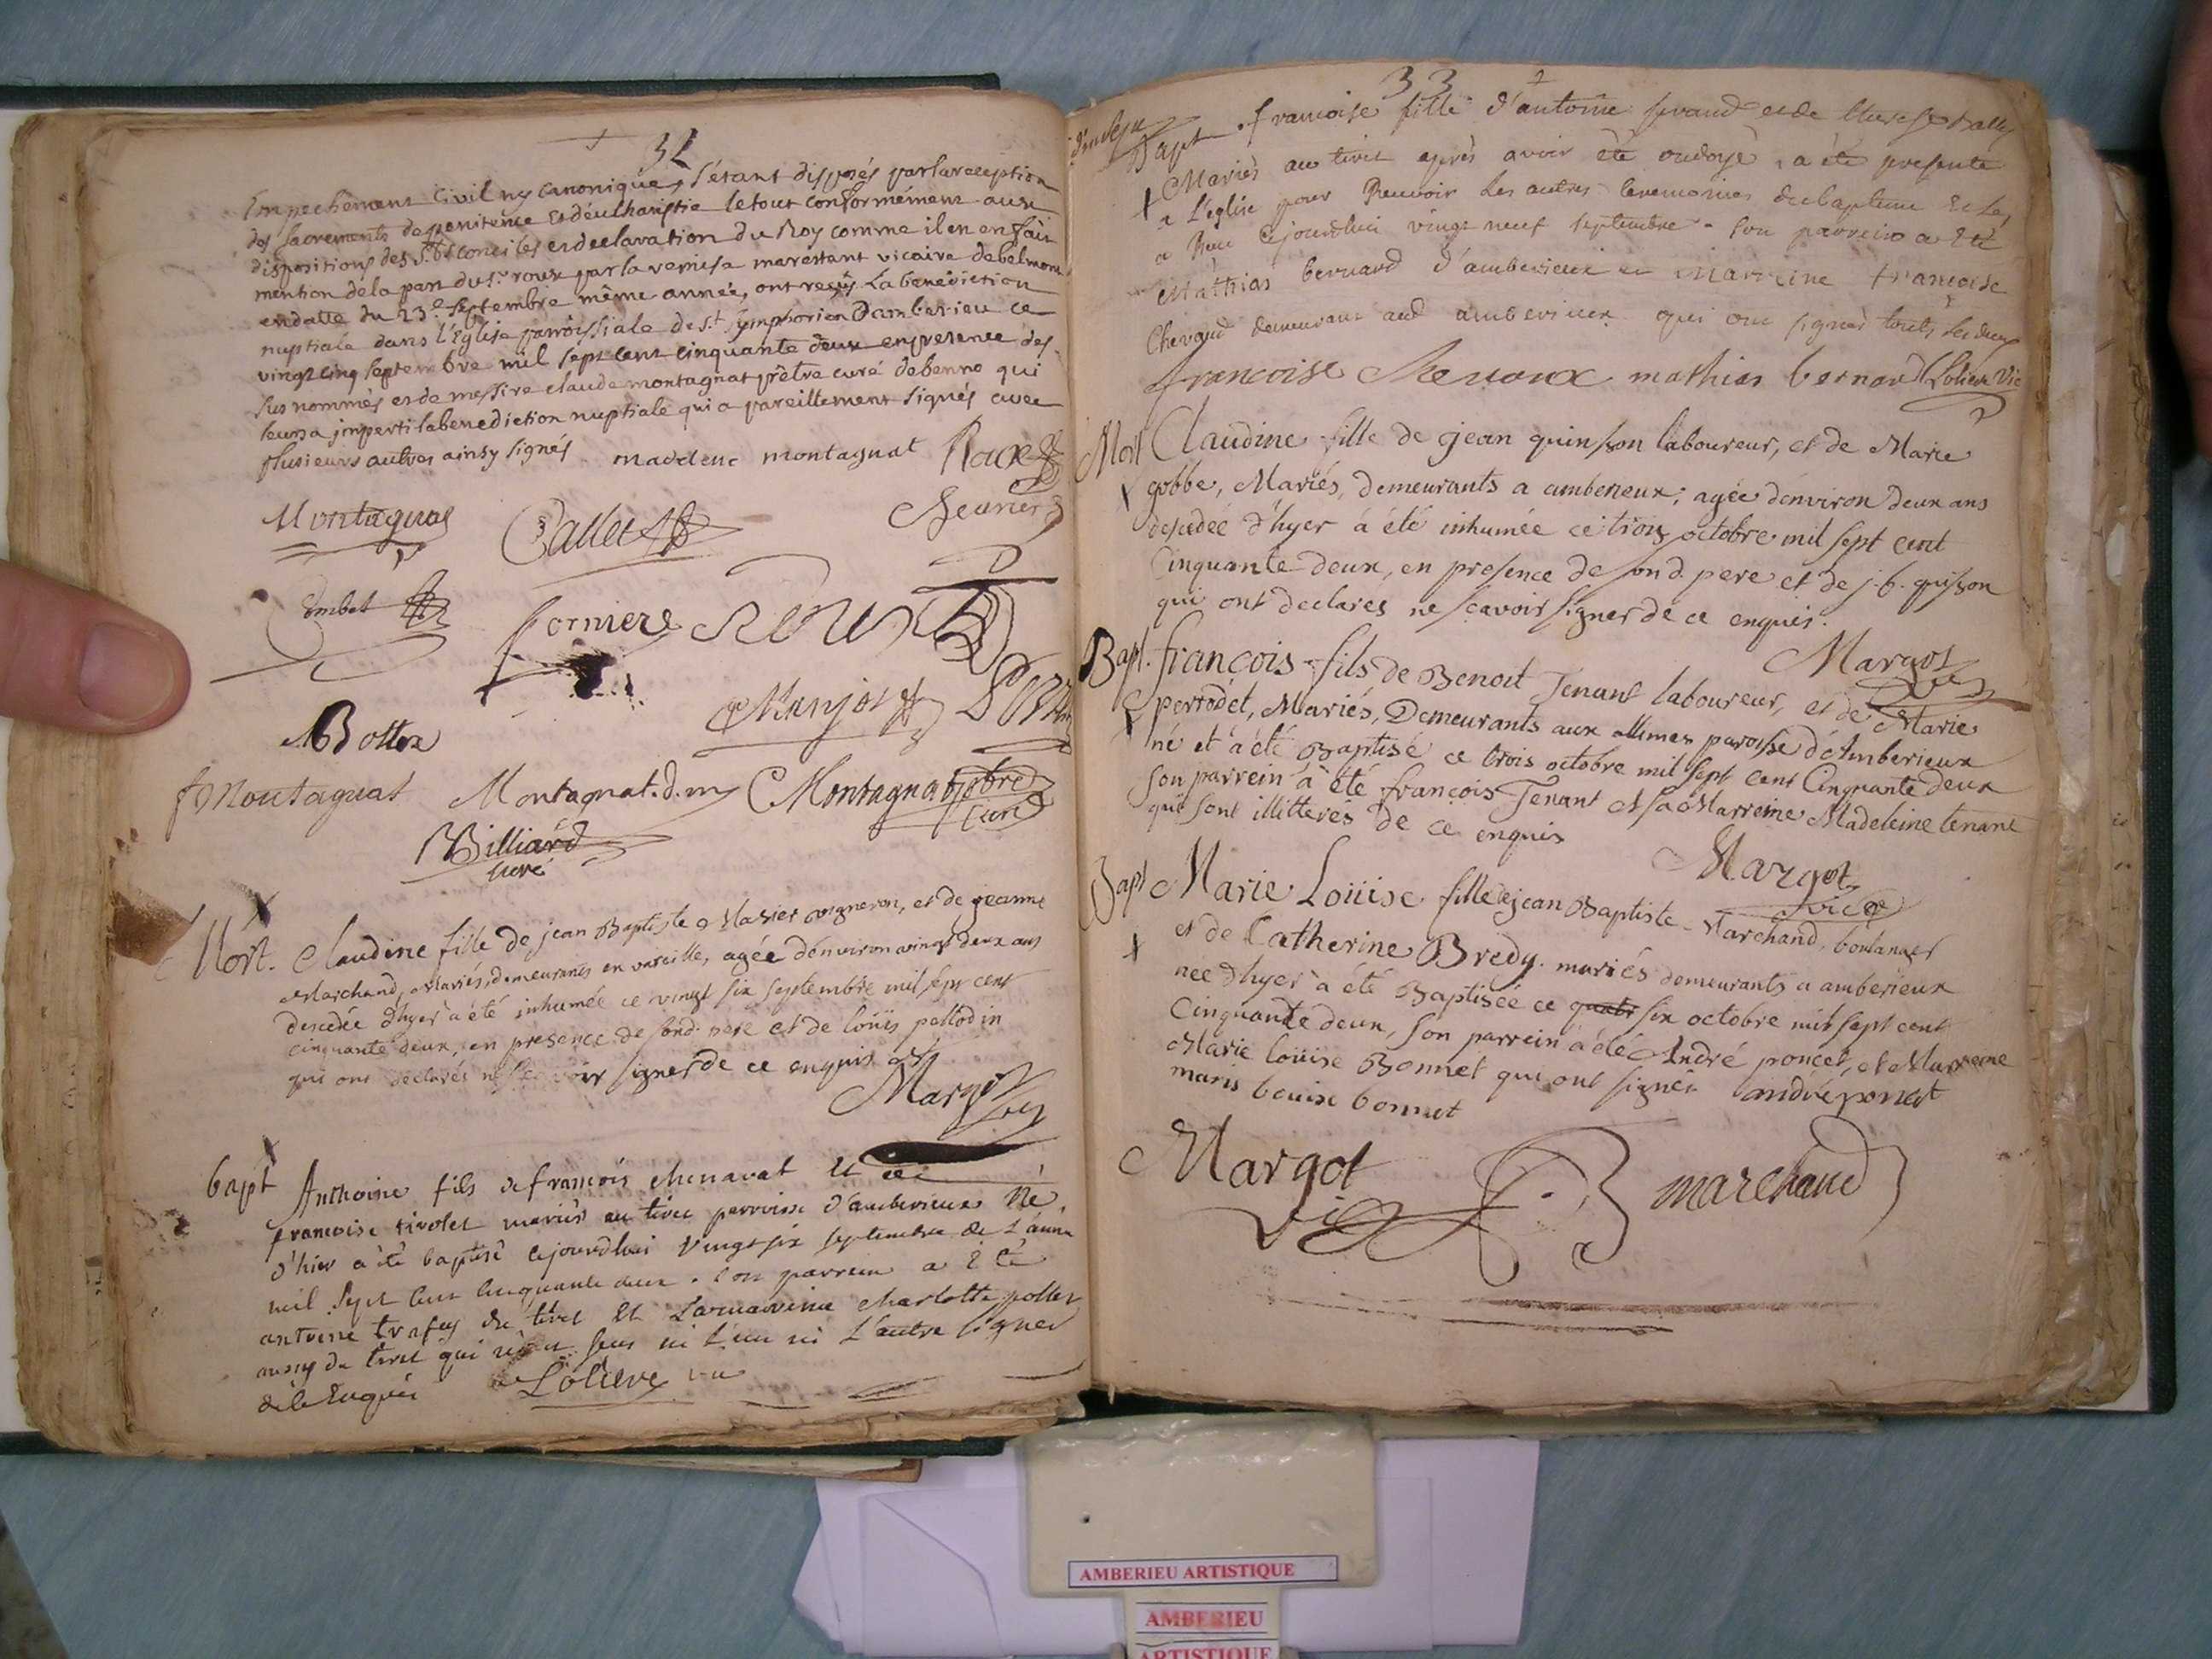 32
Empechement Civil ny canonique, s'étant disposés par la reception
des sacrements de penitence et d'eucharistie le tout conformément aux
dispositions des Sts conciles et declaration du Roy comme il en en fait
mention de la part du Sr. roux par la remise marestant vicaire de belmont
en datte du 23e septembre même année, ont reçus La benediction
nuptiale dans l'Eglise parroissiale de St Symphorien D'amberieu ce
vingt cinq septembre mil sept cent cinquante deux en presence des
sus nommés et de messire claude montagnat prêtre curé de benno qui
leurs a imperti la benediction nuptiale qui a pareillement signés avec
plusieurs autres ainsy signés
madelene montagnat Roux
Montagnat Callet
fornier
Manjot
Bottex
f Montagnat Montagnat. d. m Montagnat pbre
curé
Billiard
curé
Mort. Claudine fille de jean Baptiste Masier vigneron, et de jeanne
Marchand, Mariés, demeurants en vareille, agée denviron vingt deux ans
decedée d'hyer à été inhumée ce vingt six septembre mil sept cent
cinquante deux, en presence de sond. pere et de loüis pellodin
qui ont declarés ne sçavoir signer de ce enquis
Margot
vic
bapt Anthoine fils de francois chenavat Et de
francoise tivolet mariés au tiret parroisse d'amberieux Né
d'hier a été baptisé cejourdhui vingt six septembre de L'année
mil sept cent cinquante deux. son parrein a Eté
antoine trafey du tiret Et La marreine charlotte pollet
aussy du tiret qui n'ont sceu ni L'un ni L'autre signer
de ce Enquis Loliere vic
33
Bapt francoise fille d'antoine
Mariés au tiret après avoir été ondoyé, a été presenté
a L'eglise pour Recevoir Les autres Ceremonies du baptème Et Les
a Reçu cejourdhui vingt neuf septembre. son parrein a Eté
Mathias bernard d'amberieux et Marreine francoise
Chevaud demeurant aud amberieux qui ont signés touts les deux
francoise mathias bernard Loliere Vic
Mort Claudine fille de jean quinson laboureur, et de Marie
gobbe, Mariés, demeurants a amberieux; agée denviron deux ans
decedée d'hyer à été inhumée ce trois octobre mil sept cent
Cinquante deux, en presence de son d. pere et de j. b. quison
qui ont declarés ne scavoir signer de ce enquis.
Margot
vic
Bapt. françois fils de Benoit Tenant laboureur, et de Marie
perrodet, Mariés, Demeurants aux allimes paroisse d'Amberieux
né et à été Baptisé ce trois octobre mil sept cent Cinquante deux
son parrein à été françois Tenant et sa Marreine Madeleine tenant
qui sont illitterés de ce enquis
Margot
vic
Bapt Marie Loüise fille de jean Baptiste Marchand, boulanger
et de Catherine Bredy mariés demeurants a amberieux
née d'hyer à été Baptisée ce quatr six octobre mil sept cent
Cinquante deux, son parrein à été André poncet, et Marreine
Marie loüise Bonnet qui ont signés andré poncet
marie louise bonnet
Margot
vic
marchand
AMBERIEU ARTISTIQUE
AMBERIEU
ARTISTIQUE